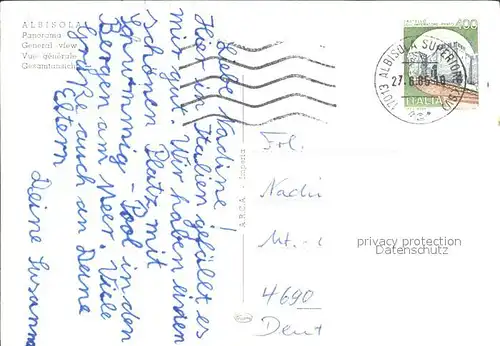 ALBISOLA
Panorama
General view
Vue générale
Gesamtansicht
Liebe Nadine!
Hier in Italien gefällt es
mir gut. Wir haben einen
schönen Platz mit
Schwimmig-Pool in den
Bergen am Meer. Viele
Grüße auch an Deine
Eltern
Deine Susann
A.R.C.A. - Imperia
400
17013 ALBISOLA SUPERIORE (SV)
27.6.86
ITALIA
Frl.
Nadi
Mt.-
4690
Deut
privacy protection
Datenschutz